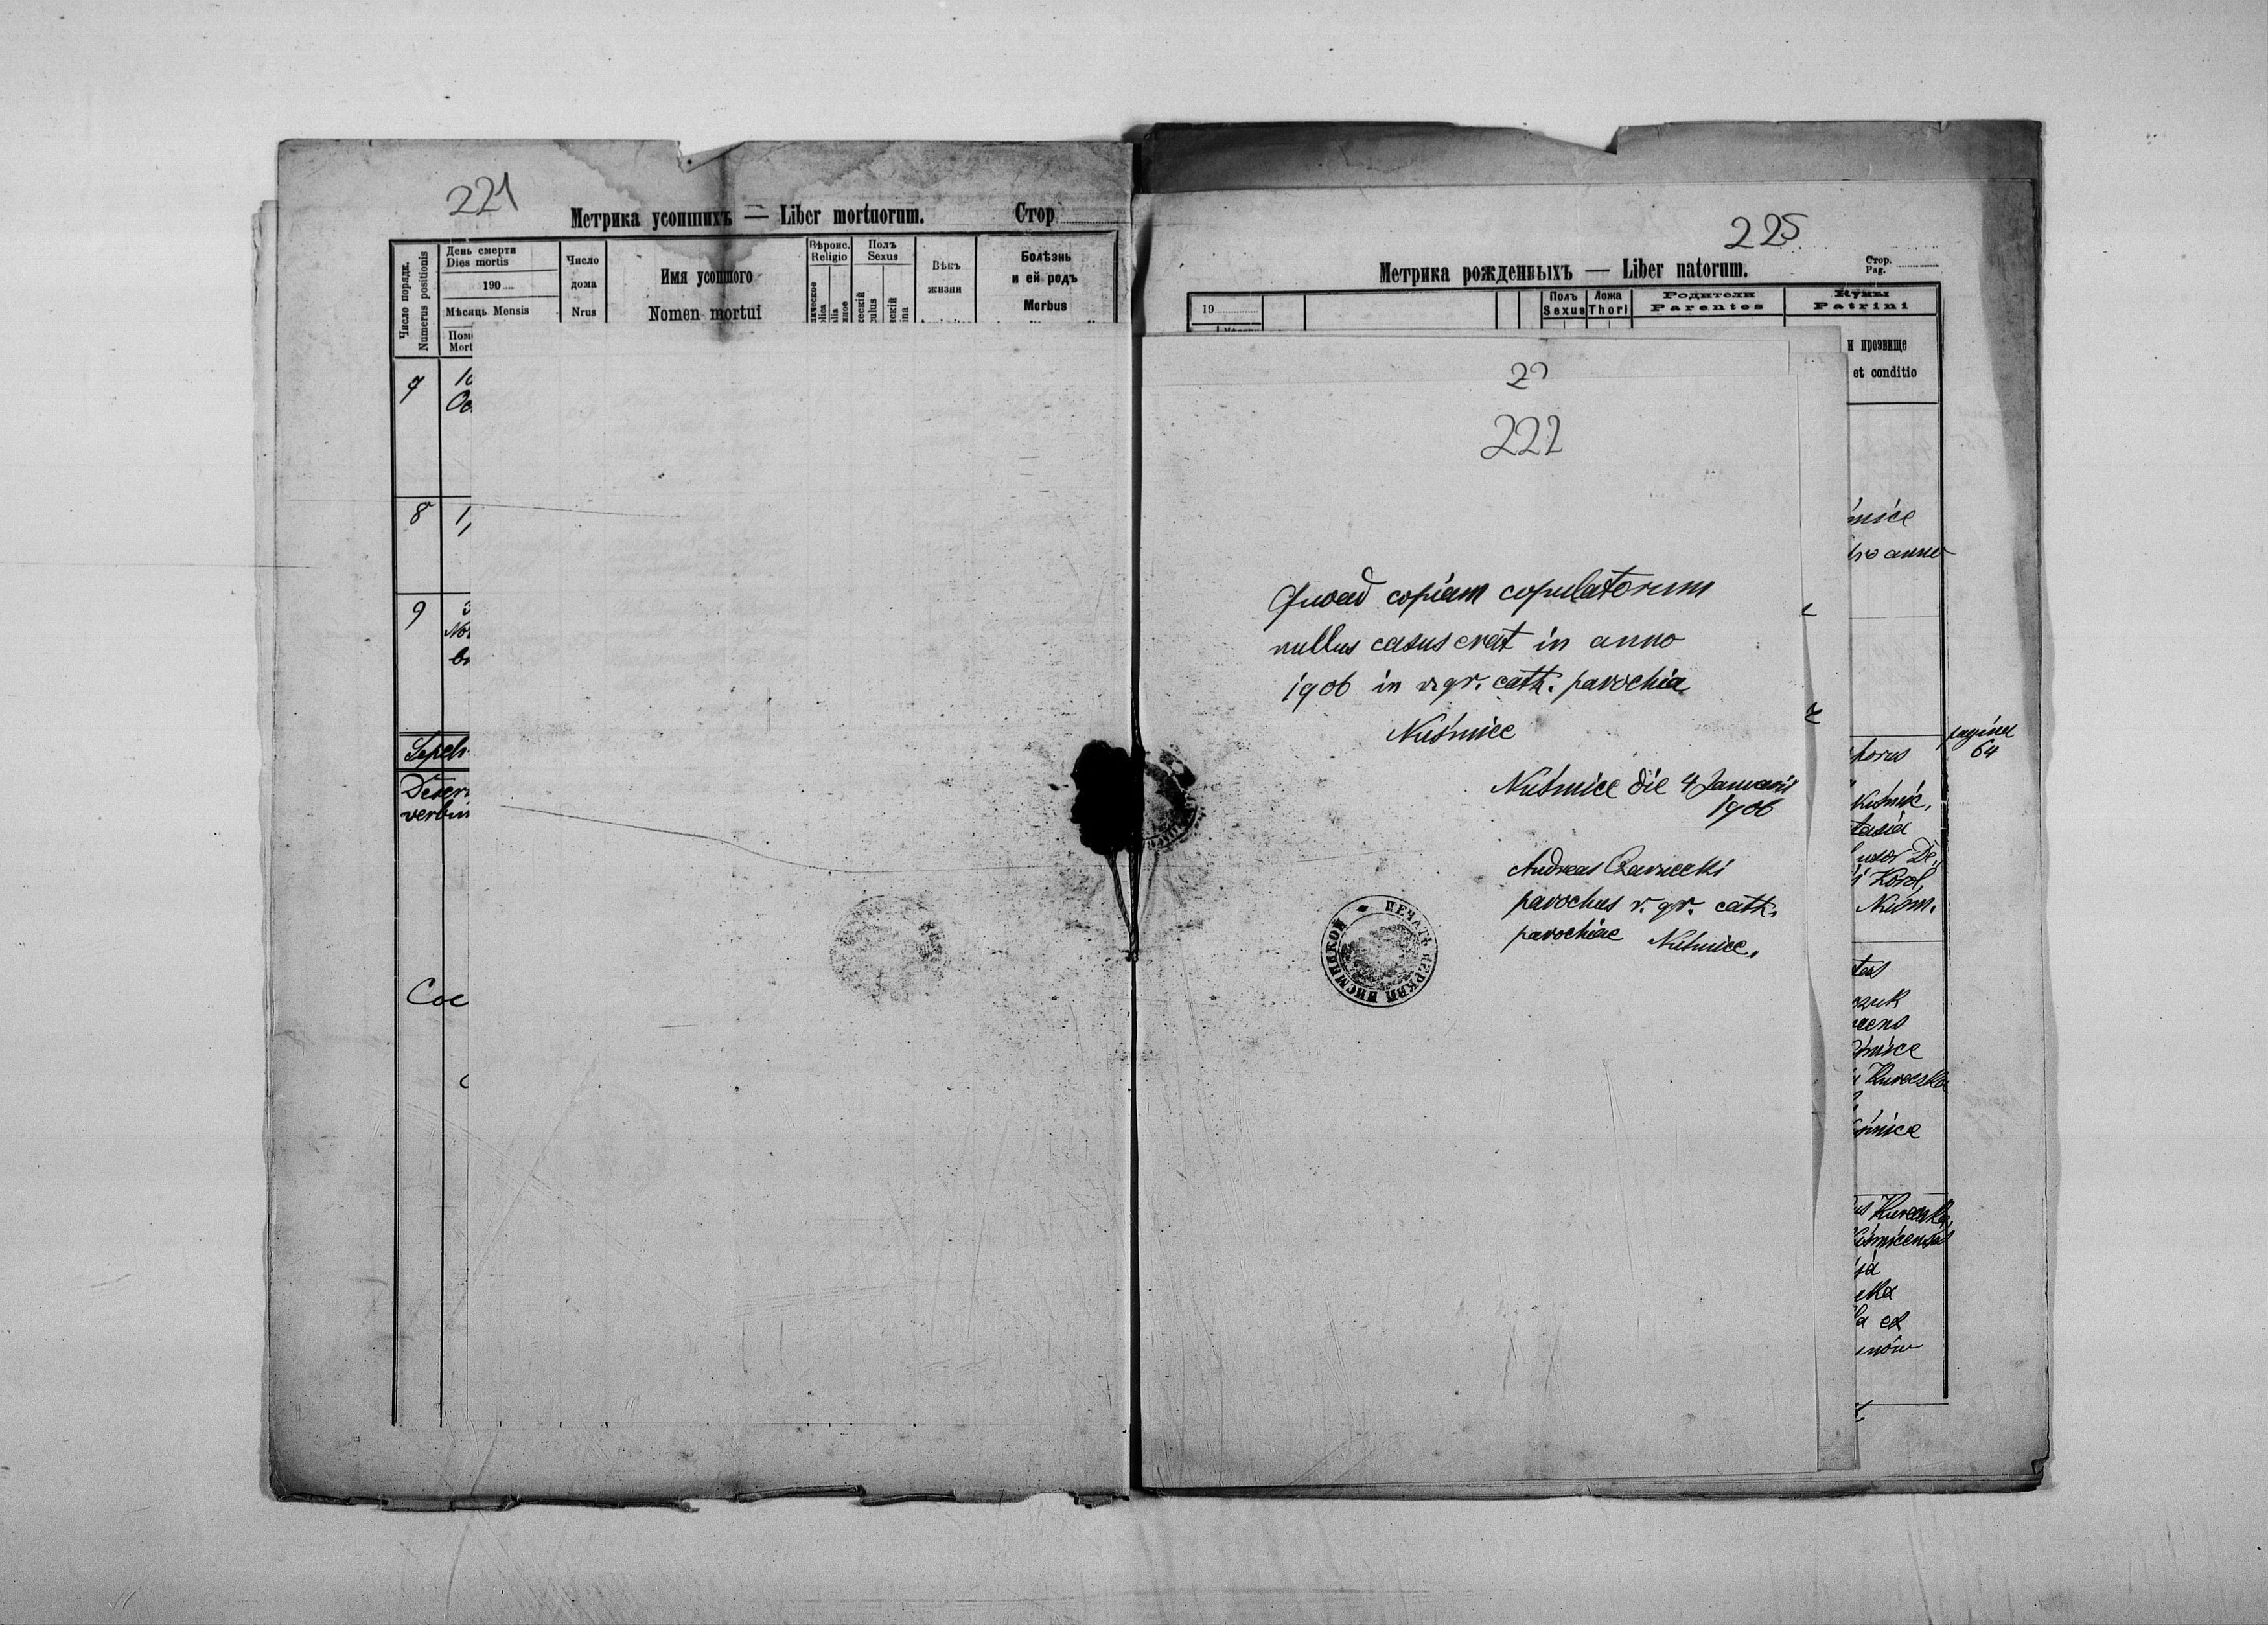 221
Метрика усопшихъ — Liber mortuorum. Стор.
Число порядк.
Numerus positionis
День смерти
Dies mortis
190
Мѣсяць Mensis
Число
дома
Nrus
Имя усопшого
Nomen mortui
Вѣроис.
Religio
Полъ
Sexus
Вѣкъ
жизни
Болѣзнь
и ей родъ
Morbus
7
8
9
225
Метрика рожденныхъ — Liber natorum.
Стор.
Pag.
19
Полъ
Sexus
Ложа
Thori
Родители
Parentes
Кумы
Patrini
и прозвище
et conditio
222
Quoad copiam copulatorum
nullus casus erat in anno
1906 in r. gr. cath. parochia
Nuśmice
Nuśmice die 4 Januarii
1906
Andreas Czarnecki
parochus r. gr. cath.
parochiae Nuśmice.
ПЕЧАТЬ ЦЕРКВИ НИСМИЦКОЙ
anno
pagina
64
uxor
Korol,
Nuśm.
et